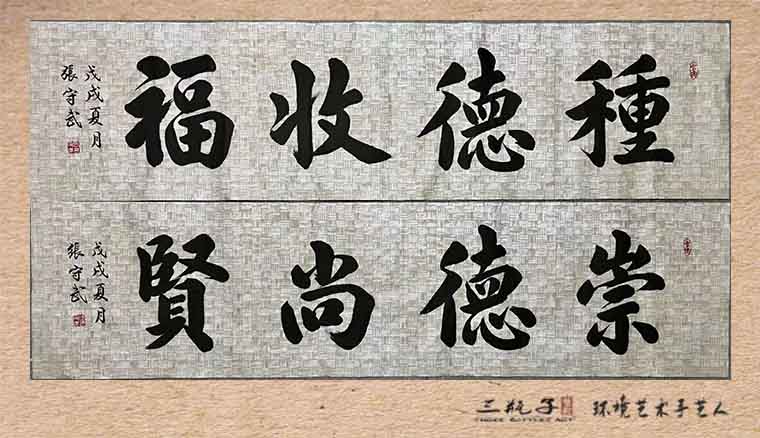 種德收福
戊戌夏月
張守武
崇德尚賢
戊戌夏月
張守武
三瓶子 环境艺术手艺人
THREE BOTTLES ART